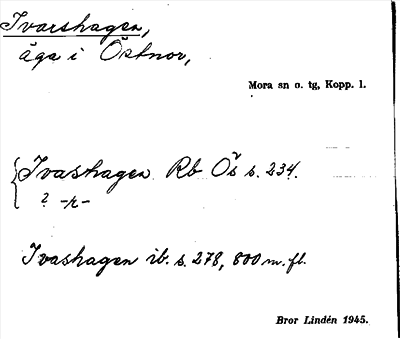 Ivarshagen,
äga i Östnor,
Mora sn o. tg, Kopp. l.
Ivashagen Rb Ös s. 234.
? -r-
Ivashagen ib. s. 278, 800 m. fl.
Bror Lindén 1945.